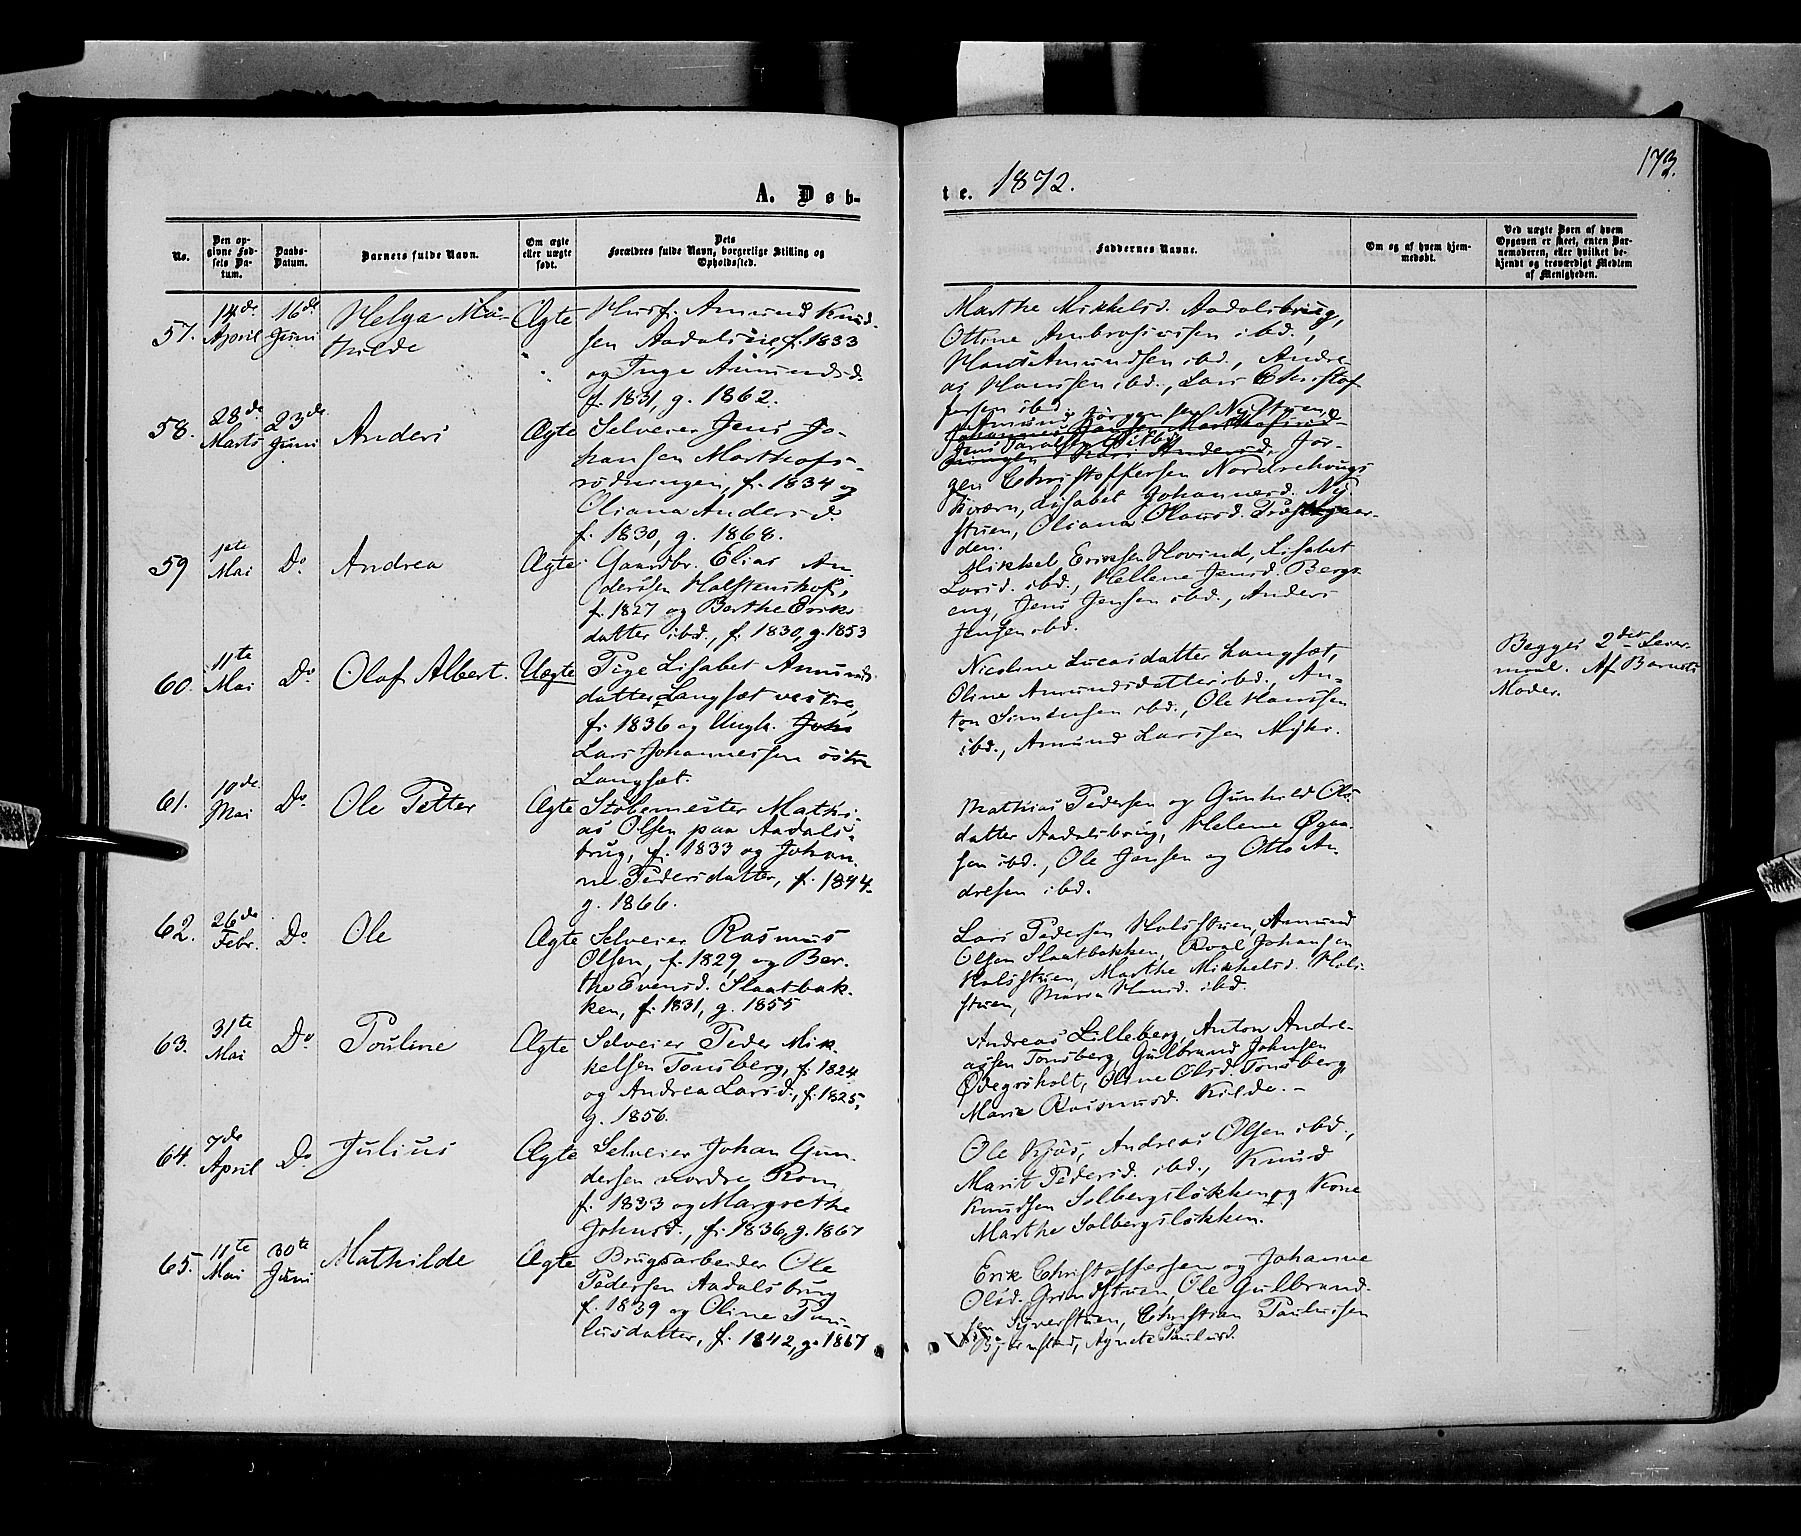 173.
A. Døb-
te. 1872.
No.
Den op-
givne Fød-
sels Da-
tum.
Daabs-
Datum.
Barnets fulde Navn.
Om ægte
eller uægte
født.
Dets
Forældres fulde Navn, borgerlige Stilling og
Opholdssted.
Faddernes Navne.
Om og af hvem hjem-
medøbt.
Ved uægte Børn af hvem
Opgaven er skeet, enten Bar-
nemoderen, eller hvilket be-
kjendt og troværdigt Medlem
af Menigheden.
57.
14de
April
16de
Juni
Helga Ma-
thilde
Ægte
Husf. Amund Knud-
sen Aadalseie, f. 1833
og Inge Amundsd.
f. 1831, g. 1862.
Marthe Mikkelsd. Aadalsbrug,
Ottine Ambrosiussen ibd.,
Hans Amundsen ibd., Andre-
as Hanssen ibd., Lars Christof-
fersen ibd.
58.
28de
Marts
23de
Juni
Anders
Ægte
Selveier Jens Jo-
hansen Morthofs-
rødningen, f. 1834 og
Oliana Andersd.
f. 1830, g. 1868.
Jør-
gen Christoffersen Nordrehougs
Kværn, Lisabet Johannesd. Ny
stuen, Oliana Olausd.
den.
59
1ste
Mai
Do
Andrea
Ægte
Gaardbr. Elias An-
dersen Halstenshof,
f. 1827 og Berthe Eriks-
datter ibd., f. 1830, g. 1853
Mikkel Eriksen Hovind, Lisabet
Larsd. ibd., Hellene Jensd. Bergs-
eng, Jens Jensen ibd., Anders
Jensen ibd.
60.
11te
Mai
Do
Olaf Albert.
Uægte
Pige Lisabet Amunds-
datter Langsæt vestre,
f. 1836 og Ungk. Joh
Lars Johannessen østre
Langsæt.
Nicoline Lucasdatter Langsæt,
Oline Amundsdatter ibd., An-
ton Simensen ibd., Ole Hanssen
ibd., Amund Larssen
Begges 2det Leier
maal. Af Barnets
Moder.
61.
10de
Mai
Do
Ole Petter
Ægte
Støbemester Mathi-
as Olsen paa Aadals-
brug, f. 1833 og Johan-
ne Pedersdatter, f. 1844.
g. 1866.
Mathias Pedersen og Gunhild Ols-
datter Aadalsbrug, Helene
sen ibd., Ole Jensen og Otto An-
dresen ibd.
62.
26de
Febr.
Do
Ole
Ægte
Selveier Rasmus
Olsen, f. 1829, og Ber-
the Evensd. Slaatbak-
ken, f. 1831, g. 1855
Lars Pedersen Holsstuen, Amund
Olsen Slaatbakken, Roal Johansen
Holsstuen, Marthe Mikkelsd. Hols-
stuen, Maria Hansd. ibd.
63.
31te
Mai
Do
Pouline
Ægte
Selveier Peder Mik-
kelsen Tonsberg, f. 1824
og Andrea Larsd., f. 1825,
g. 1856.
Andreas Lilleberg, Anton Andre-
assen Tonsberg, Gulbrand Johnsen
Ødegsholt, Oline Olsd. Tonsberg
Maria Rasmusd. Kilde. -
64.
7de
April
Do
Julius
Ægte
Selveier Johan Gun-
dersen nordre Rom
f. 1833 og Margrethe
Johnsd., f. 1836, g. 1867
Ole Kjøs, Andreas Olsen ibd.,
Marit Pedersd. ibd., Knud
Knudsen Solbergsløkken og Kone
Marthe Solbergsløkken.
65.
11te
Mai
30te
Juni
Mathilde
Ægte
Brugsarbeider Ole
Pedersen Aadalsbrug
f. 1839 og Oline Pau-
lusdatter, f. 1842, g. 1867
Erik Christoffersen og Johanne
Olsd. Grindstuen, Ole Gulbrand-
sen Syverstuen, Christian Paulussen
Bjørnstad, Agnete Paulusd.